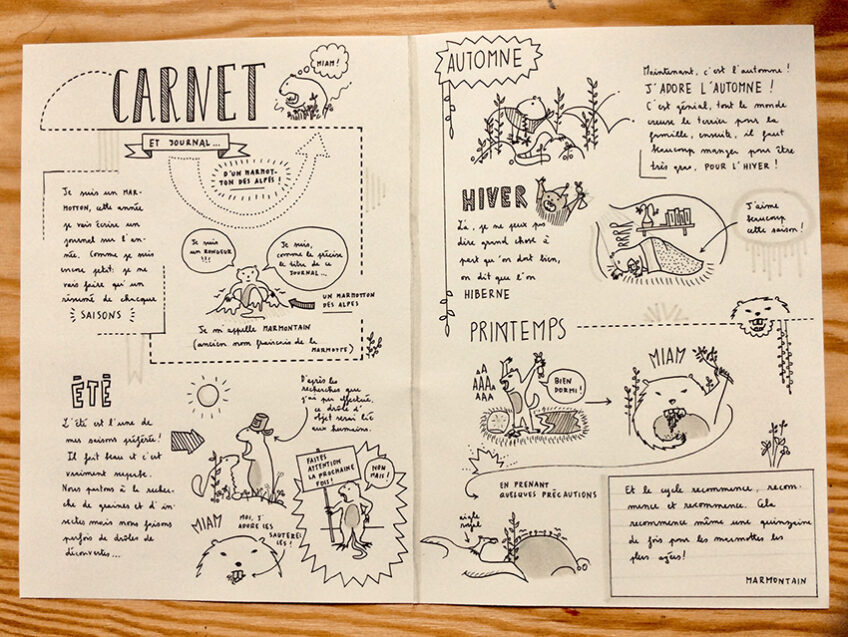 CARNET
ET JOURNAL...
D'UN MARMOT-
TON DES ALPES !
MIAM!
Je suis un MAR-
MOTTON, cette année
je vais écrire un
journal sur l'an-
née. Comme je suis
encore petit: je ne
vais faire qu'un
résumé de chaque
SAISONS
Je suis
un RONGEUR
!!!
Je suis,
comme le précise
le titre de ce
JOURNAL...
UN MARMOTTON
DES ALPES
Je m'appelle MARMONTAIN
(ancien nom francais de la
MARMOTTE)
ÉTÉ
L'été est l'une de
mes saisons préférée!
Il fait beau et c'est
vraiment superbe.
Nous partons à la recher-
che de graines et d'in-
sectes mais nous faisons
parfois de drôles de
découvertes...
D'après les
recherches que
j'ai pu effectué,
ce drôle d'
objet serai lié
aux humains.
FAITES
ATTENTION
LA PROCHAINE
FOIS!
NON
MAIS!
MIAM
MOI, J'
ADORE LES
SAUTEREL
LES !
AUTOMNE
Maintenant, c'est l'automne!
J'ADORE L'AUTOMNE !
C'est génial, tout le monde
creuse le terrier pour la
famille, ensuite, il faut
beaucoup manger pour être
très gras, POUR L'HIVER !
HIVER
Là, je ne peux pas
dire grand chose à
part qu'on dort bien,
on dit que l'on
HIBERNE
RRRR
J'aime
beaucoup
cette saison!
PRINTEMPS
AA
AAA
AAA
AA
BIEN
DORMI!
MIAM
EN PRENANT
QUELQUES PRÉCAUTIONS
aigle
royal
Et le cycle recommence, recom-
mence et recommence. Cela
recommence même une quinzaine
de fois pour les marmottes les
plus agées!
MARMONTAIN